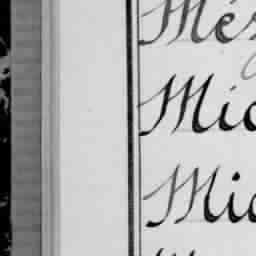 Més
Mic
Mic